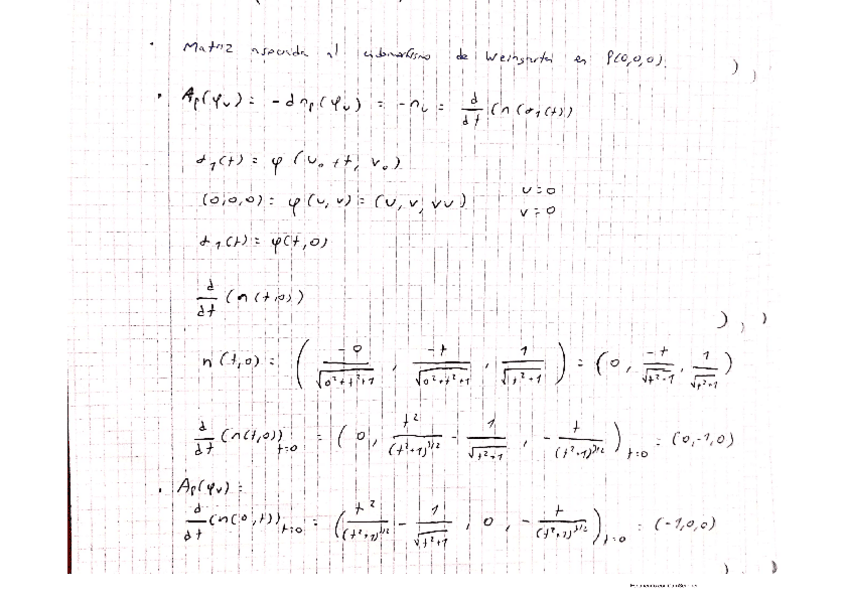 · Matriz asociada al endomorfismo de Weingarten en P(0,0,0).
· Ap(φu) = -dnp(φu) = -nu = d/dt (n(α1(t)))
α1(t) = φ(u0+t, v0)
(0,0,0) = φ(u,v) = (u,v,vu) u=0
v=0
α1(t) = φ(t,0)
d/dt (n(t,0))
n(t,0) = (-0/√(0²+t²+1), -t/√(0²+t²+1), 1/√(t²+1)) = (0, -t/√(t²+1), 1/√(t²+1))
d/dt (n(t,0))t=0 = (0, t²/(t²+1)^3/2 - 1/√(t²+1), -t/(t²+1)^3/2)t=0 = (0,-1,0)
· Ap(φv) =
d/dt (n(0,t))t=0 = (t²/(t²+1)^3/2 - 1/√(t²+1), 0, -t/(t²+1)^3/2)t=0 = (-1,0,0)